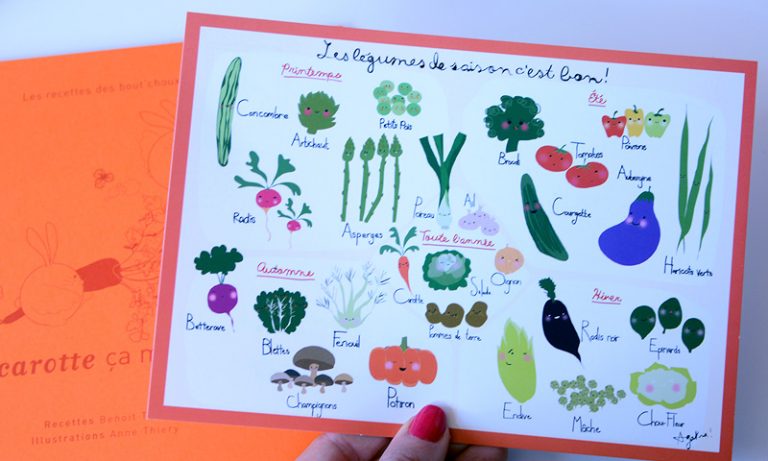 Les légumes de saison c'est bon!
Printemps
Concombre
Artichaut
Petits Pois
Radis
Asperges
Poireau
Ail
Été
Brocoli
Tomates
Poivrons
Aubergine
Courgette
Haricots Verts
Toute l'année
Carotte
Salade
Oignon
Pommes de terre
Automne
Betterave
Blettes
Fenouil
Champignons
Potiron
Hiver
Radis noir
Epinards
Endive
Mâche
Chou-Fleur
Les recettes des bout'choux
carotte ça
Recettes Benoit
Illustrations Anne Thiéry